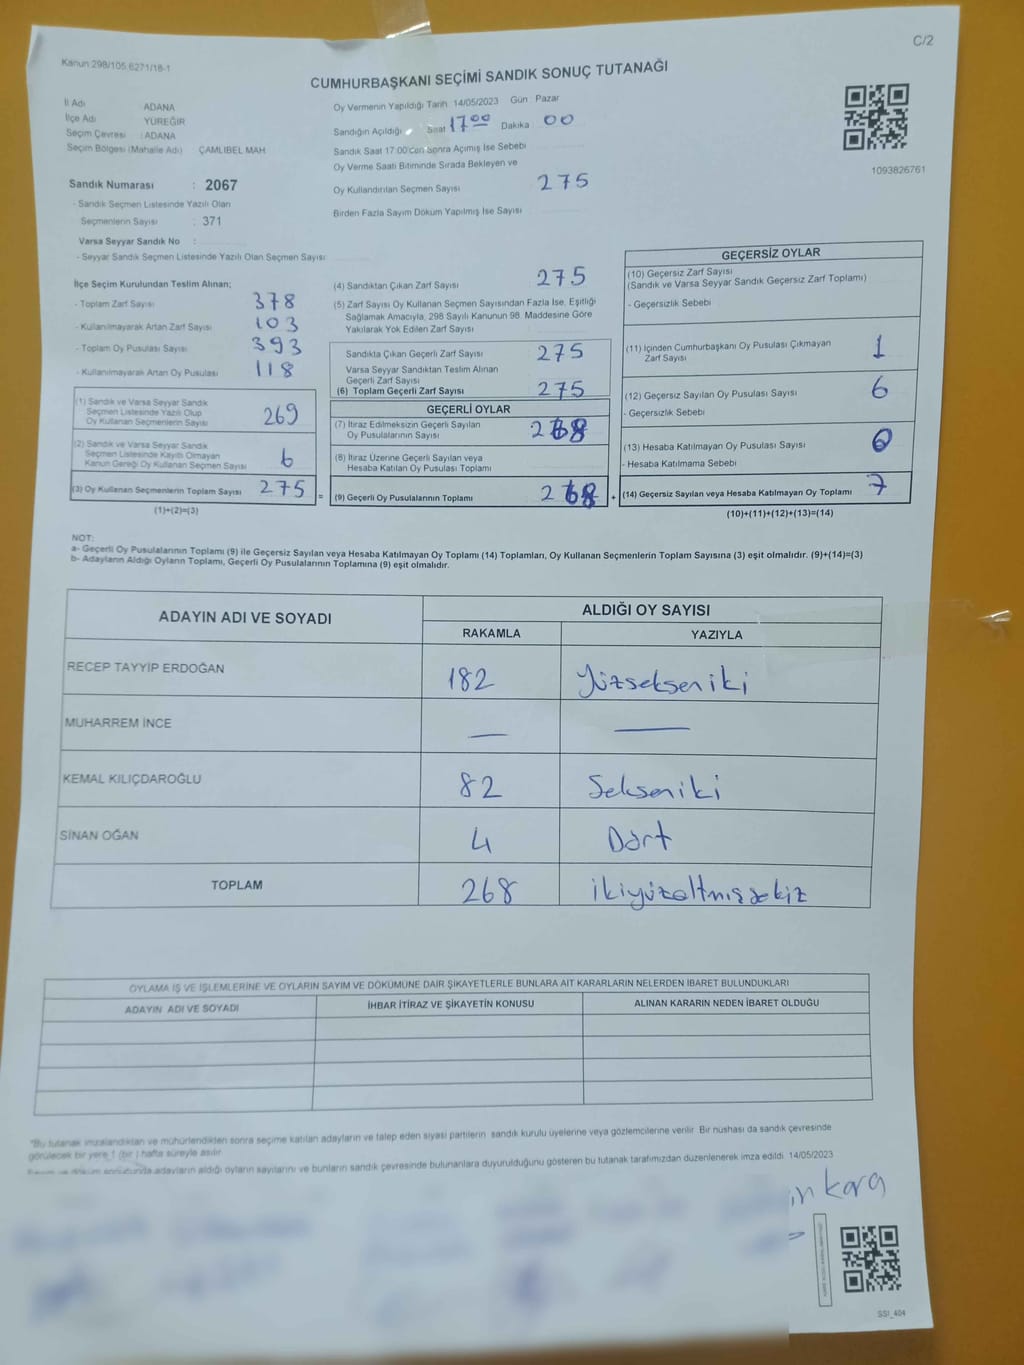 C/2
Kanun:298/105 6271/18-1
CUMHURBAŞKANI SEÇİMİ SANDIK SONUÇ TUTANAĞI
İl Adı ADANA
İlçe Adı YÜREĞİR
Seçim Çevresi : ADANA
Seçim Bölgesi (Mahalle Adı) ÇAMLIBEL MAH
Sandık Numarası : 2067
- Sandık Seçmen Listesinde Yazılı Olan
Seçmenlerin Sayısı : 371
Varsa Seyyar Sandık No :
- Seyyar Sandık Seçmen Listesinde Yazılı Olan Seçmen Sayısı
Oy Vermenin Yapıldığı Tarih 14/05/2023 Gün : Pazar
Sandığın Açıldığı Saat 17 00 Dakika 00
Sandık Saat 17:00'den Sonra Açımış İse Sebebi
Oy Verme Saati Bitiminde Sırada Bekleyen ve
Oy Kullandırılan Seçmen Sayısı 275
Birden Fazla Sayım Döküm Yapılmış İse Sayısı
1093826761
İlçe Seçim Kurulundan Teslim Alınan;
- Toplam Zarf Sayısı 378
- Kullanılmayarak Artan Zarf Sayısı 103
- Toplam Oy Pusulası Sayısı 393
- Kullanılmayarak Artan Oy Pusulası 118
(1) Sandık ve Varsa Seyyar Sandık
Seçmen Listesinde Yazılı Olup
Oy Kullanan Seçmenlerin Sayısı 269
(2) Sandık ve Varsa Seyyar Sandık
Seçmen Listesinde Kayıtlı Olmayan
Kanun Gereği Oy Kullanan Seçmen Sayısı 6
(3) Oy Kullanan Seçmenlerin Toplam Sayısı 275 =
(1)+(2)=(3)
(4) Sandıktan Çıkan Zarf Sayısı 275
(5) Zarf Sayısı Oy Kullanan Seçmen Sayısından Fazla İse, Eşitliği
Sağlamak Amacıyla, 298 Sayılı Kanunun 98. Maddesine Göre
Yakılarak Yok Edilen Zarf Sayısı
Sandıkta Çıkan Geçerli Zarf Sayısı 275
Varsa Seyyar Sandıktan Teslim Alınan
Geçerli Zarf Sayısı
(6) Toplam Geçerli Zarf Sayısı 275
GEÇERLİ OYLAR
(7) İtiraz Edilmeksizin Geçerli Sayılan
Oy Pusulalarının Sayısı 268
(8) İtiraz Üzerine Geçerli Sayılan veya
Hesaba Katılan Oy Pusulası Toplamı
(9) Geçerli Oy Pusulalarının Toplamı 268 +
GEÇERSİZ OYLAR
(10) Geçersiz Zarf Sayısı
(Sandık ve Varsa Seyyar Sandık Geçersiz Zarf Toplamı)
- Geçersizlik Sebebi
(11) İçinden Cumhurbaşkanı Oy Pusulası Çıkmayan
Zarf Sayısı 1
(12) Geçersiz Sayılan Oy Pusulası Sayısı 6
- Geçersizlik Sebebi
(13) Hesaba Katılmayan Oy Pusulası Sayısı 0
- Hesaba Katılmama Sebebi
(14) Geçersiz Sayılan veya Hesaba Katılmayan Oy Toplamı 7
(10)+(11)+(12)+(13)=(14)
NOT:
a- Geçerli Oy Pusulalarının Toplamı (9) ile Geçersiz Sayılan veya Hesaba Katılmayan Oy Toplamı (14) Toplamları, Oy Kullanan Seçmenlerin Toplam Sayısına (3) eşit olmalıdır. (9)+(14)=(3)
b- Adayların Aldığı Oyların Toplamı, Geçerli Oy Pusulalarının Toplamına (9) eşit olmalıdır.
ADAYIN ADI VE SOYADI
ALDIĞI OY SAYISI
RAKAMLA YAZIYLA
RECEP TAYYİP ERDOĞAN 182 Yüzsekseniki
MUHARREM İNCE — —
KEMAL KILIÇDAROĞLU 82 Sekseniki
SİNAN OĞAN 4 Dört
TOPLAM 268 ikiyüzaltmışsekiz
OYLAMA İŞ VE İŞLEMLERİNE VE OYLARIN SAYIM VE DÖKÜMÜNE DAİR ŞİKAYETLERLE BUNLARA AİT KARARLARIN NELERDEN İBARET BULUNDUKLARI
ADAYIN ADI VE SOYADI İHBAR İTİRAZ VE ŞİKAYETİN KONUSU ALINAN KARARIN NEDEN İBARET OLDUĞU
*Bu tutanak imzalandıktan ve mühürlendikten sonra seçime katılan adayların ve talep eden siyasi partilerin sandık kurulu üyelerine veya gözlemcilerine verilir. Bir nüshası da sandık çevresinde
görülecek bir yere 1 (bir ) hafta süreyle asılır.
adayların aldığı oyların sayılarını ve bunların sandık çevresinde bulunanlara duyurulduğunu gösteren bu tutanak tarafımızdan düzenlenerek imza edildi. 14/05/2023
SSI_404